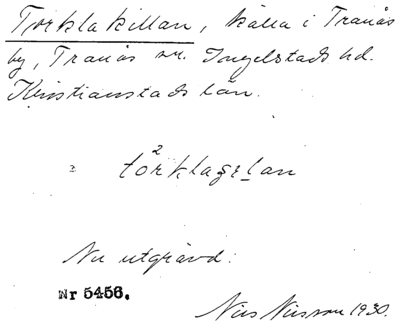 Torkla killan, källa i Tranås
by, Tranås sn. Ingelstads hd.
Kristianstads län.
2
Nu utgrävd.
Nr 5456.
Nils Nilsson 1930.